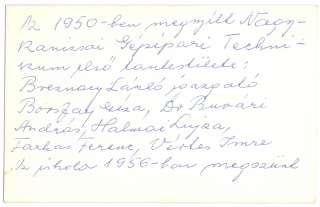 Az 1950-ben megnyílt Nagy-
kanizsai Gépipari Techni-
kum első tantestülete:
László igazgató
Géza, Dr Buvári
András, Halmai Lujza,
Farkas Ferenc, Vértes Imre
Az iskola 1956-ban megszünt